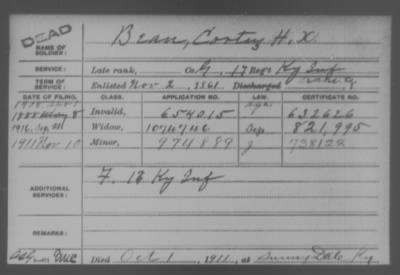 DEAD
NAME OF SOLDIER: Bean, Cortez H. X.
SERVICE: Late rank, Co. G, 17 Reg't Ky Inf
TERM OF SERVICE: Enlisted Nov 2, 1861 Discharged
DATE OF FILING. CLASS. APPLICATION NO. LAW. CERTIFICATE NO.
1888 May 8 Invalid, 654015 632626
1916 Widow, 1074746 821,995
1911 Nov 10 Minor, 974889 J 738128
ADDITIONAL SERVICES: F. 13 Ky Inf
REMARKS:
Died Oct 1, 1911, at Sunny Dale Ky.